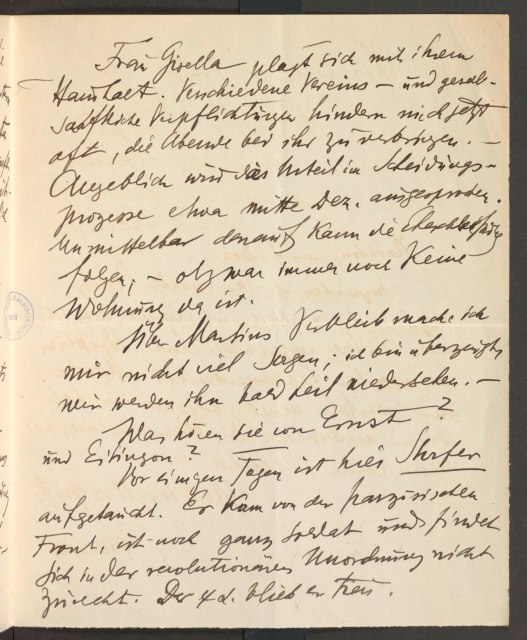 Frau Gisella plagt sich mit ihrem
Haushalt. Verschiedene Vereins – und gesell-
schaftliche Verpflichtungen hindern mich jetzt
oft, die Abende bei ihr zu verbringen. –
Angeblich wird das Urteil im Scheidungs-
prozesse etwa mitte Dez. ausgesprochen.
Unmittelbar darauf kann die Eheschließung
folgen, – obzwar immer noch keine
Wohnung da ist.
Über Martins Verbleib mache ich
mir nicht viel Sorgen; ich bin überzeugt,
wir werden ihn bald heil wiedersehen. –
Was hören Sie von Ernst?
und Eitingon?
Vor einigen Tagen ist hier
aufgetaucht. Er kam von der französischen
Front, ist noch ganz Soldat und findet
sich in der revolutionären Unordnung nicht
zurecht. Der blieb er treu.